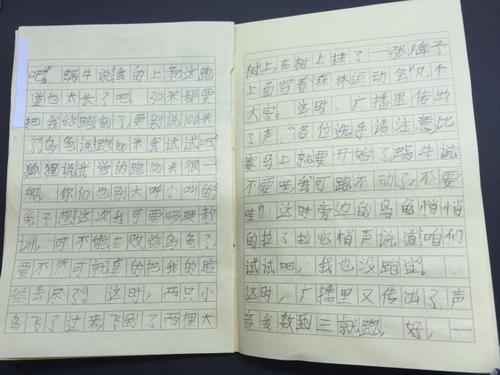 吧。蜗牛说我的上帝这跑
道也太长了吧。30米都要
把我给跑倒了,更别说100米
了乌龟说100米我试试吧
狐狸说我说的跑100米很一
般,你们也别大呼小叫的
兔子想这次我可要吸取教
训,可不能在败给乌龟了
要不然可就真的把我的脸
给丢尽了。这时,两只小
鸟飞了过来,飞到了两棵大
树上,在树上挂了一张牌子
上面写着“森林运动会”几个
大字。这时,广播里传出
了声,“各位选手请注意比
赛马上就要开始了,蜗牛说
不要哇我可跑不动了,不要
哇!这时旁边的乌龟悄悄
的拉了拉他悄声说道咱们
试试吧,我也没跑过。
这时,广播里又传出了声
音我数到三就跑,好,一